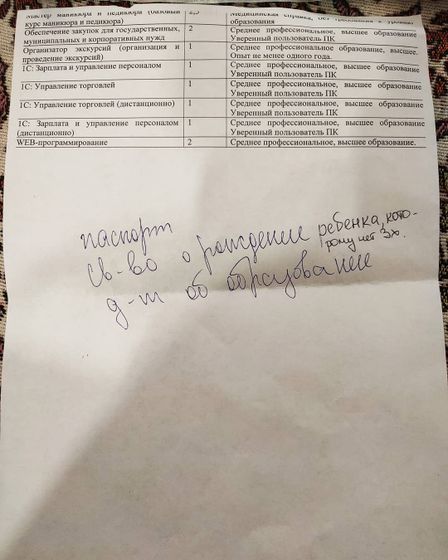 Мастер маникюра и педикюра (базовый
курс маникюра и педикюра)
2,5
Медицинская справка, без требований к уровню
образования
Обеспечение закупок для государственных,
муниципальных и корпоративных нужд
2
Среднее профессиональное, высшее образование
Уверенный пользователь ПК
Организатор экскурсий (организация и
проведение экскурсий)
1
Среднее профессиональное образование, высшее.
Опыт не менее одного года.
1С: Зарплата и управление персоналом
1
Среднее профессиональное, высшее образование
Уверенный пользователь ПК
1С: Управление торговлей
1
Среднее профессиональное, высшее образование
Уверенный пользователь ПК
1С: Управление торговлей (дистанционно)
1
Среднее профессиональное, высшее образование
Уверенный пользователь ПК
1С: Зарплата и управление персоналом
(дистанционно)
1
Среднее профессиональное, высшее образование
Уверенный пользователь ПК
WEB-программирование
2
Среднее профессиональное, высшее образование.
паспорт
св-во о рождении ребенка, кото-
рому нет 3х.
д-т об образовании